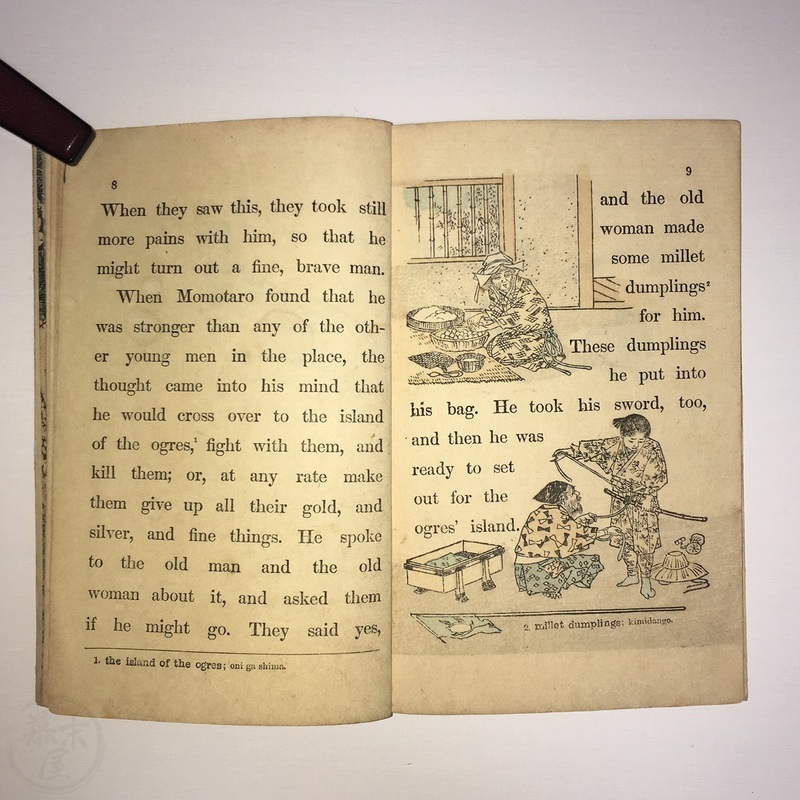 8
When they saw this, they took still
more pains with him, so that he
might turn out a fine, brave man.
When Momotaro found that he
was stronger than any of the oth-
er young men in the place, the
thought came into his mind that
he would cross over to the island
of the ogres,¹ fight with them, and
kill them; or, at any rate make
them give up all their gold, and
silver, and fine things. He spoke
to the old man and the old
woman about it, and asked them
if he might go. They said yes,
1. the island of the ogres; oni ga shima.
9
and the old
woman made
some millet
dumplings²
for him.
These dumplings
he put into
his bag. He took his sword, too,
and then he was
ready to set
out for the
ogres' island.
2. millet dumplings; kimidango.